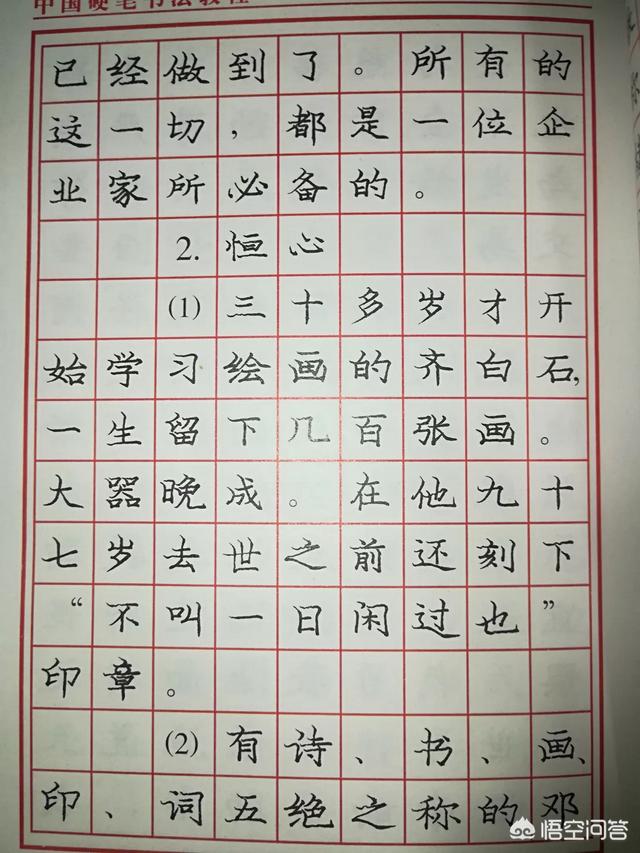 中国硬笔书法教程
已经做到了。所有的
这一切，都是一位企
业家所必备的。
2.恒心
(1)三十多岁才开
始学习绘画的齐白石，
一生留下几百张画。
大器晚成。在他九十
七岁去世之前还刻下
“不叫一日闲过也”
印章。
(2)有诗、书、画、
印、词五绝之称的邓
悟空问答